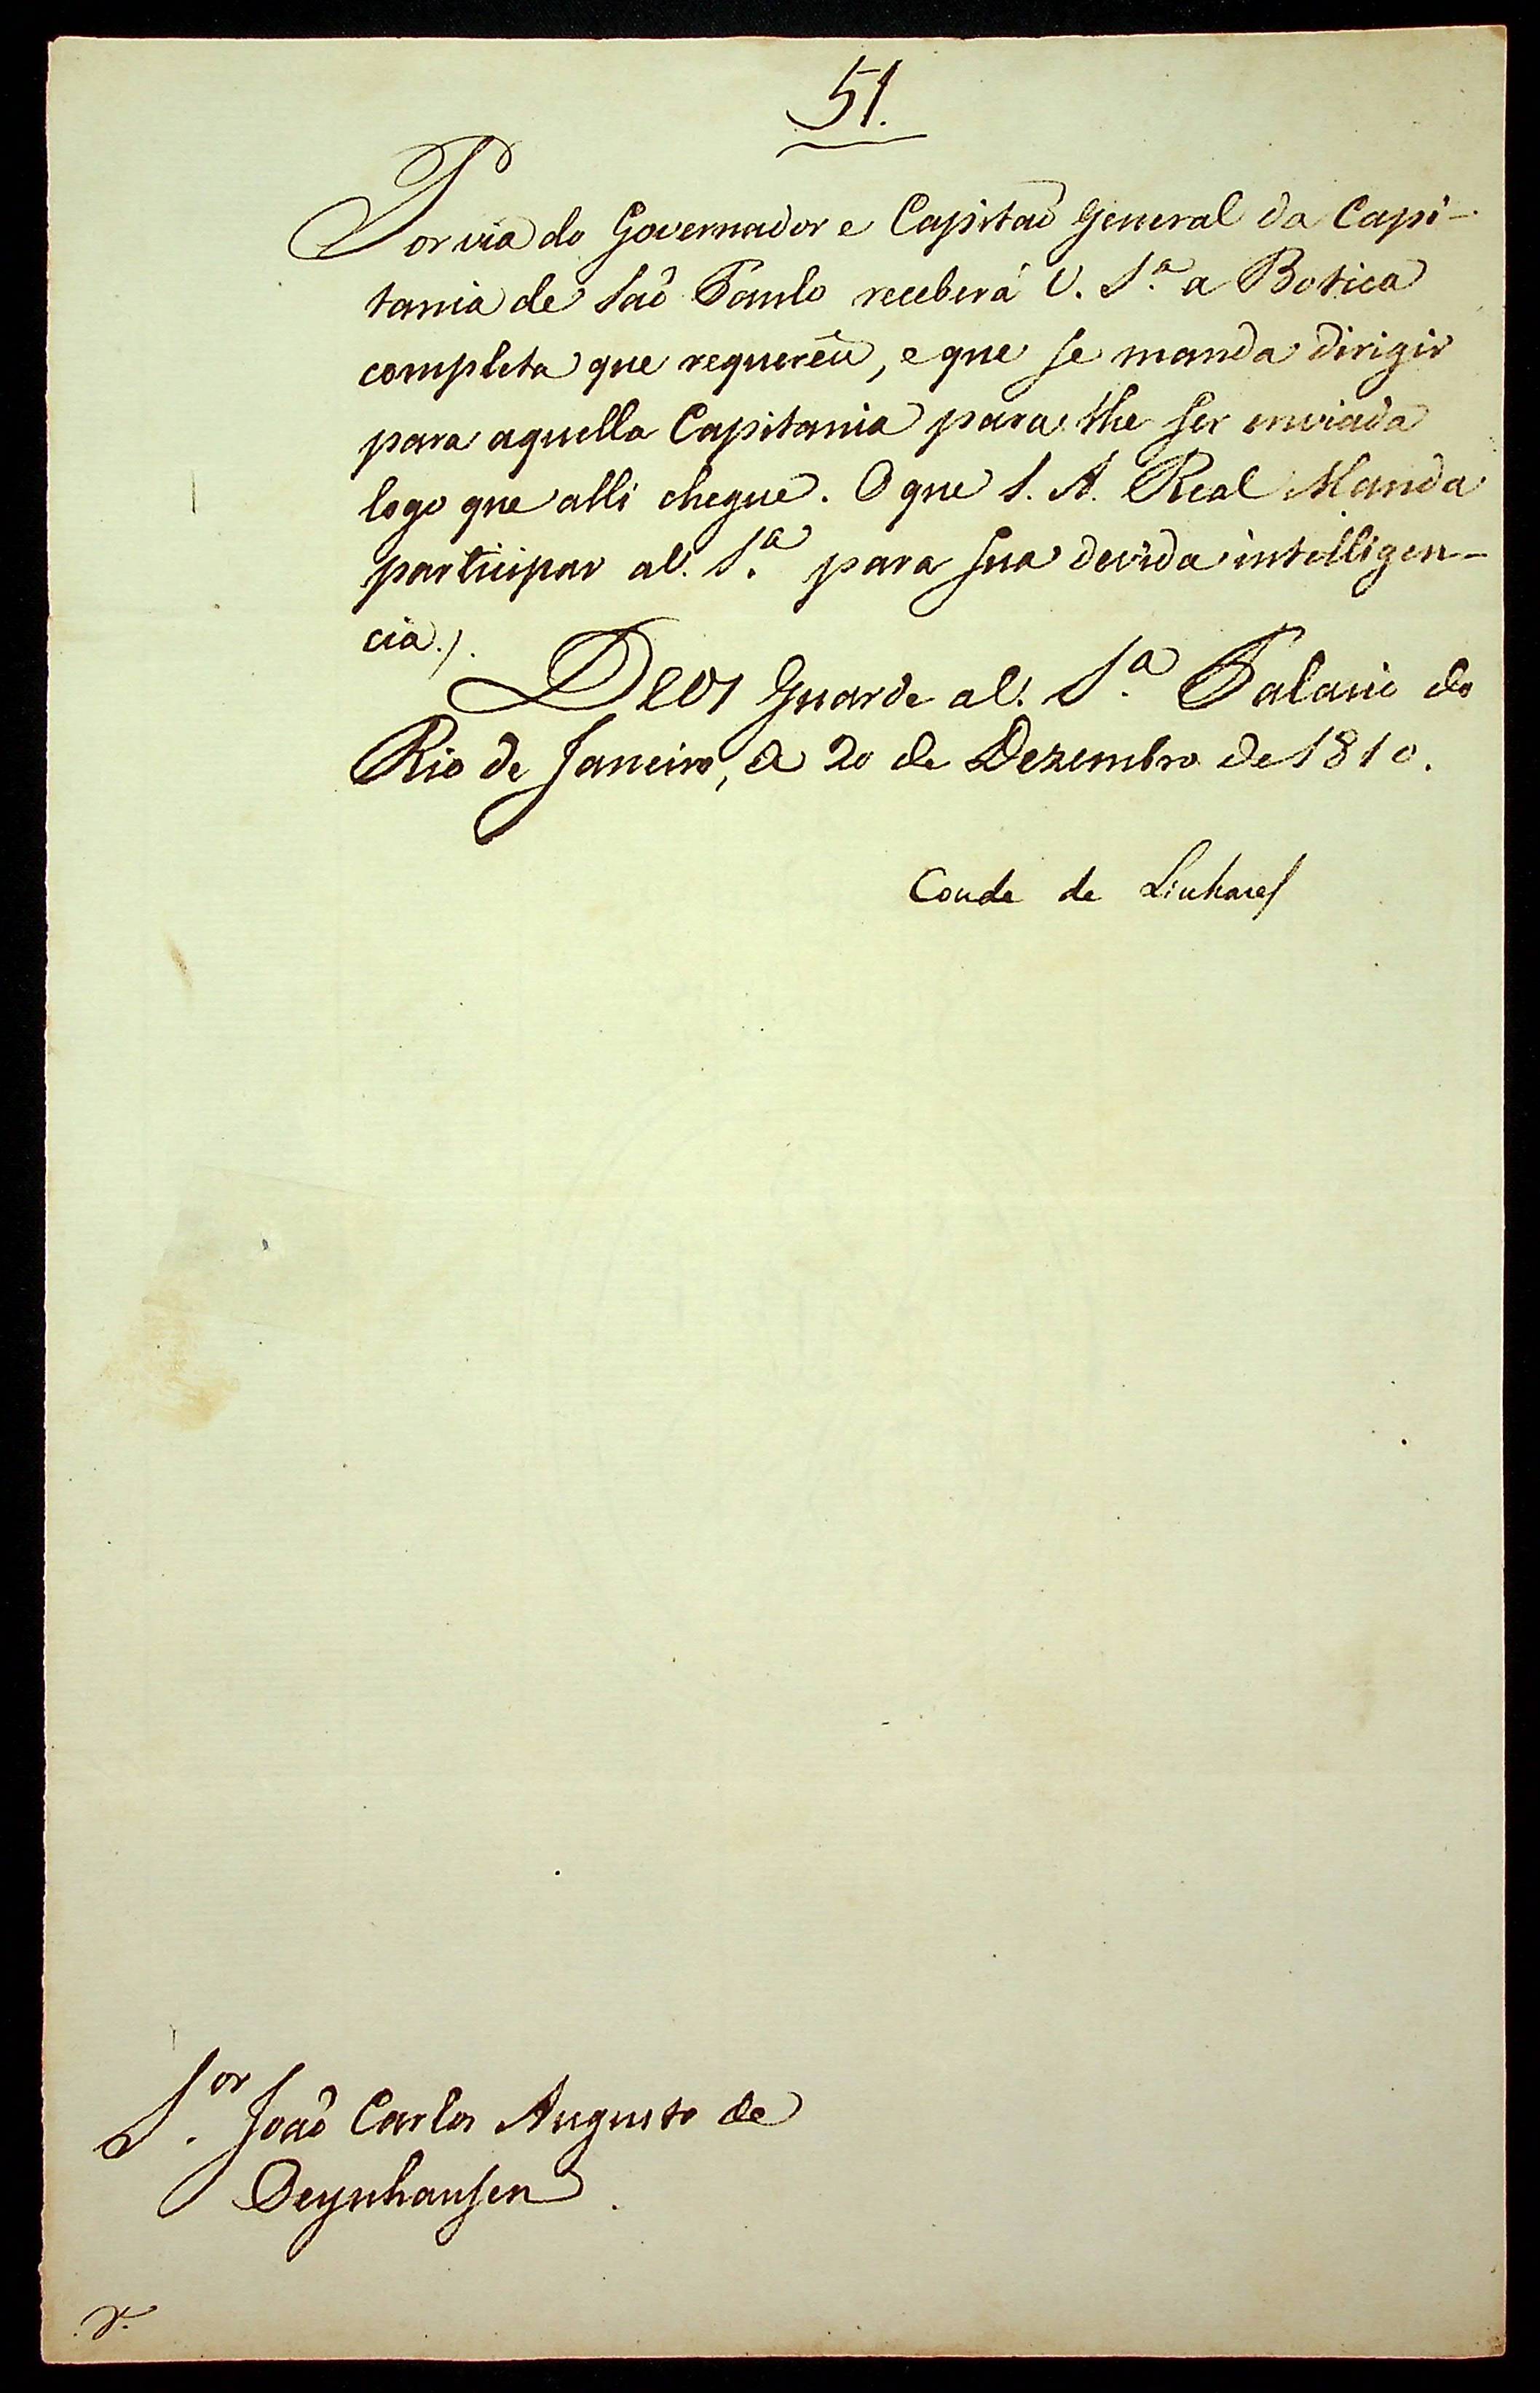 51.
Por via do Governador e Capitaõ General da Capi-
tania de Saõ Paulo receberá V. S.ª a Botica
completa que requerêu, e que se manda dirigir
para aquella Capitania para lhe ser enviada
logo que alli chegue. O que S. A. Real Manda
participar a V. S.ª para sua devida intelligen-
cia.
Deos Guarde a V. S.ª Palacio do
Rio de Janeiro, a 20 de Dezembro de 1810.
Conde de Linhares
S.or Joaõ Carlos Augusto de
Oeynhausen.